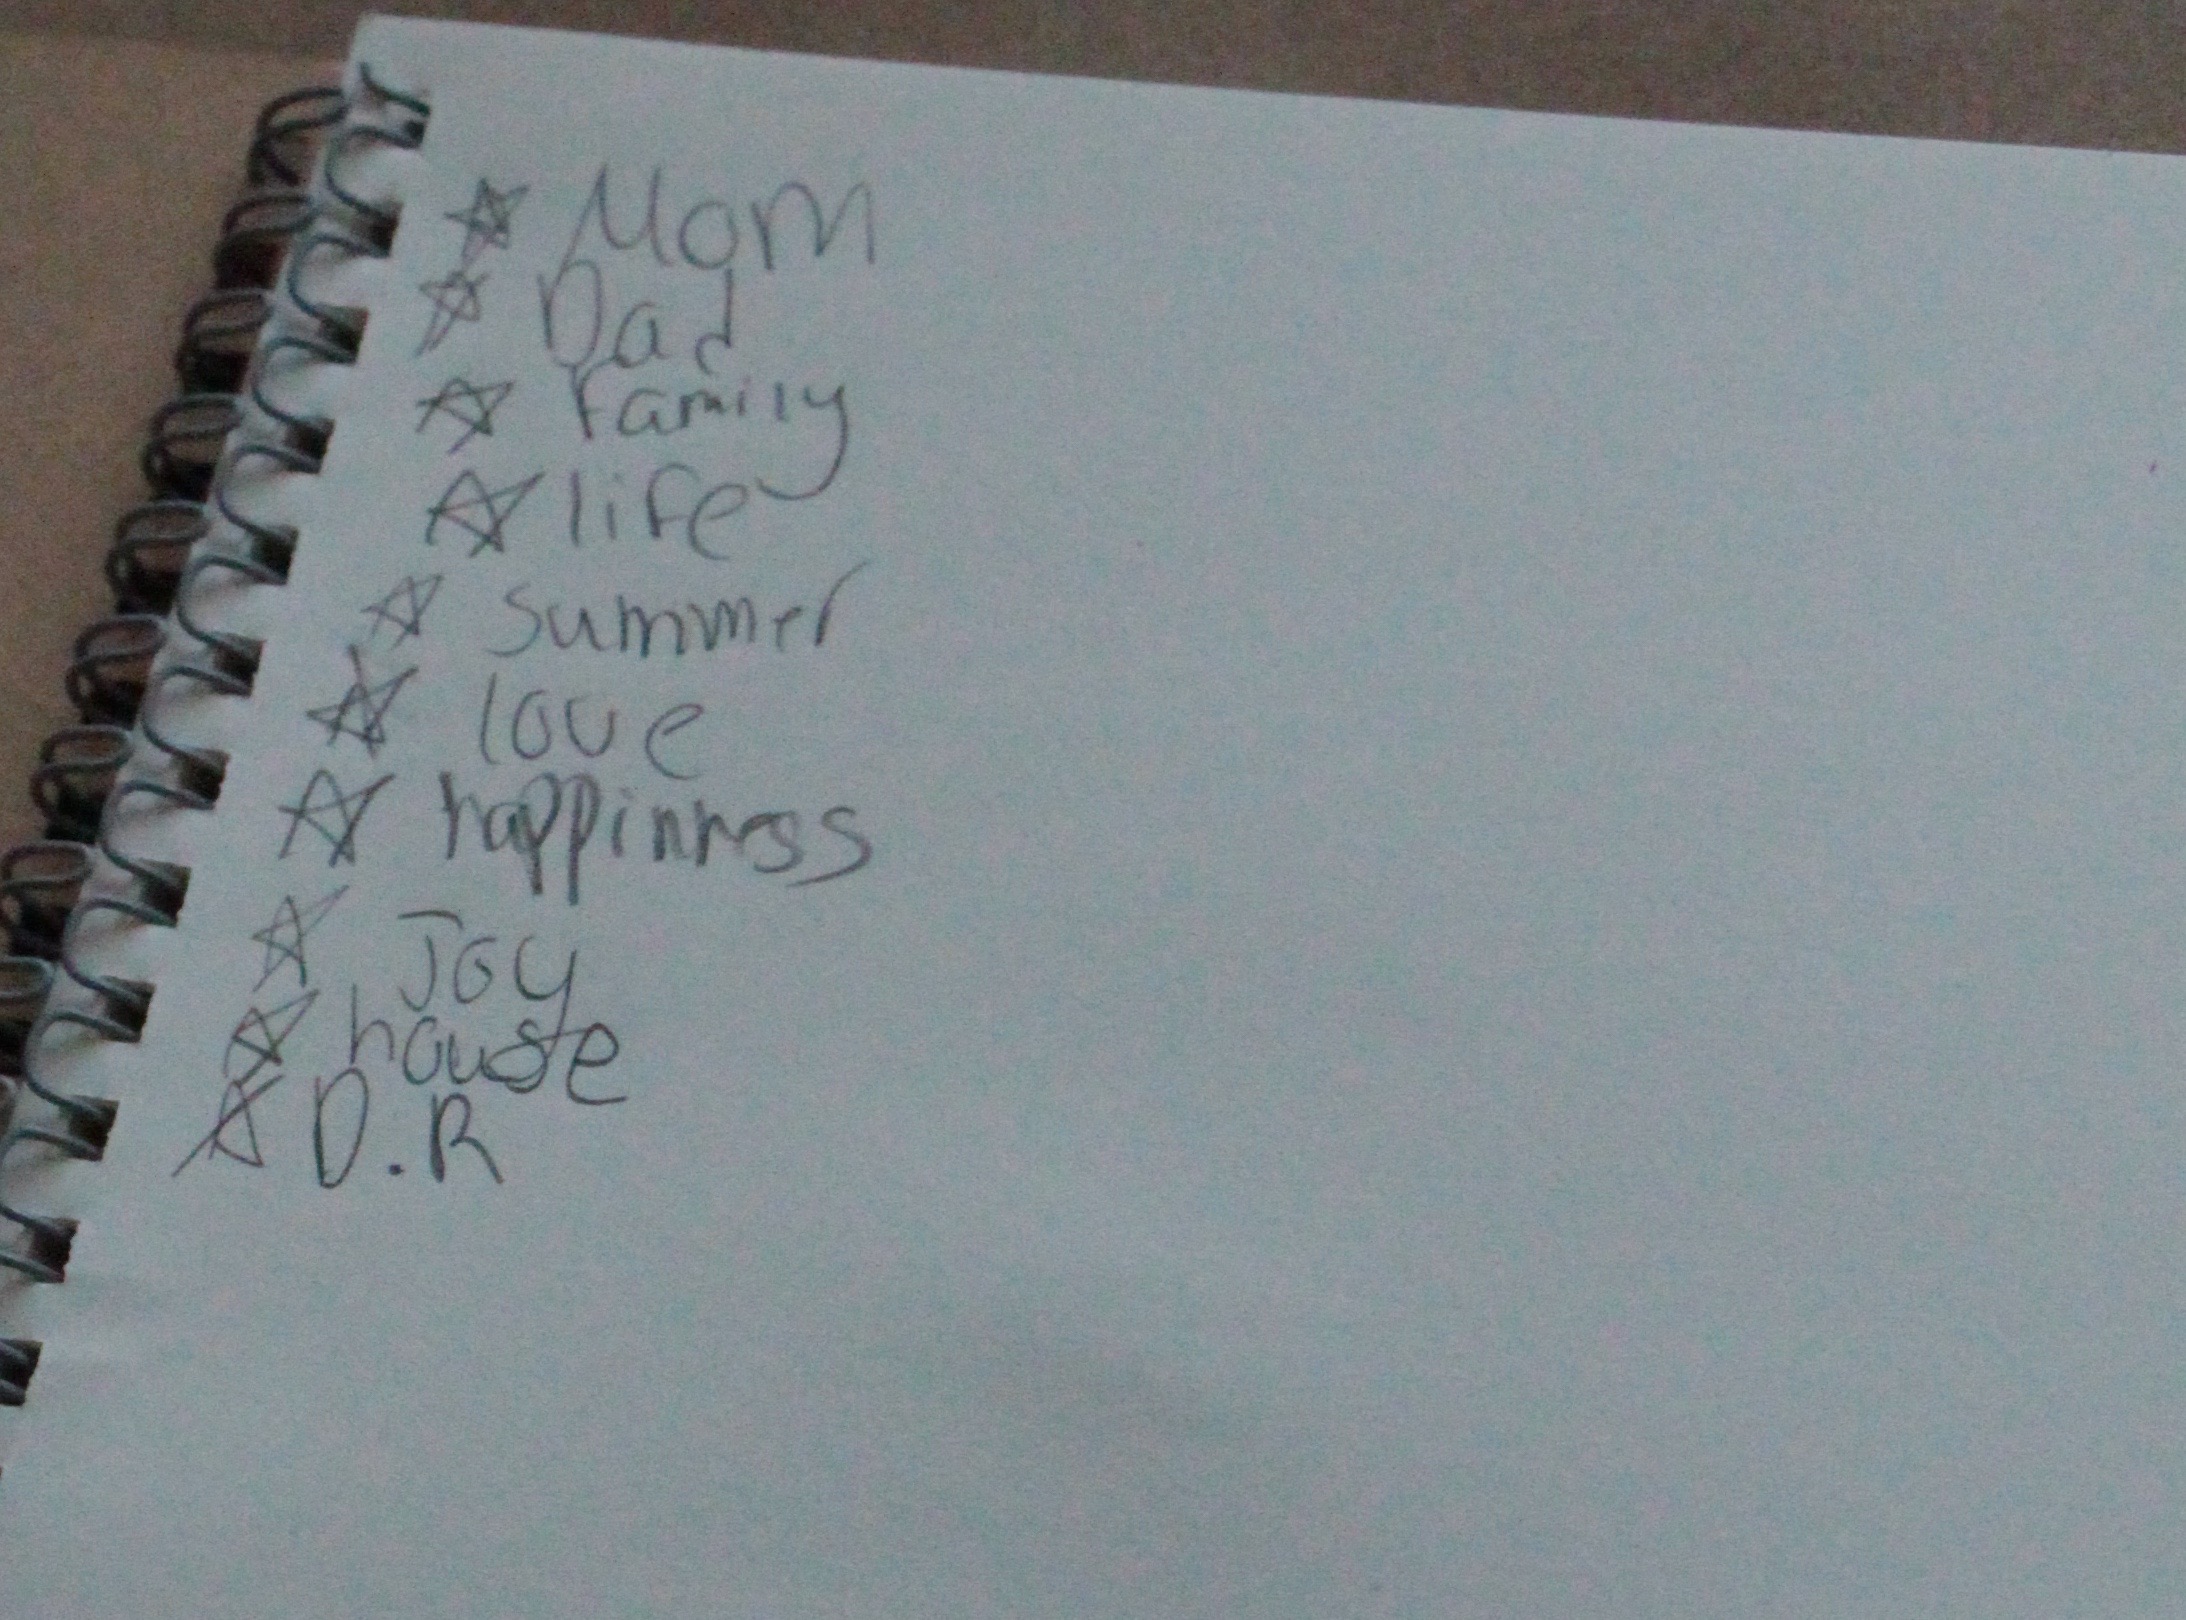 ☆ Mom
☆ Dad
☆ Family
☆ life
☆ summer
☆ love
☆ happinness
☆ Joy
☆ house
☆ D.R